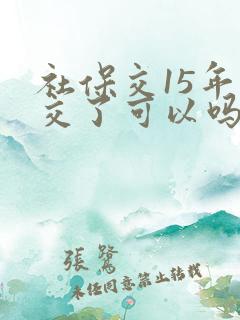 社保交15年
交了可以吗
張鷺
未经同意禁止转载